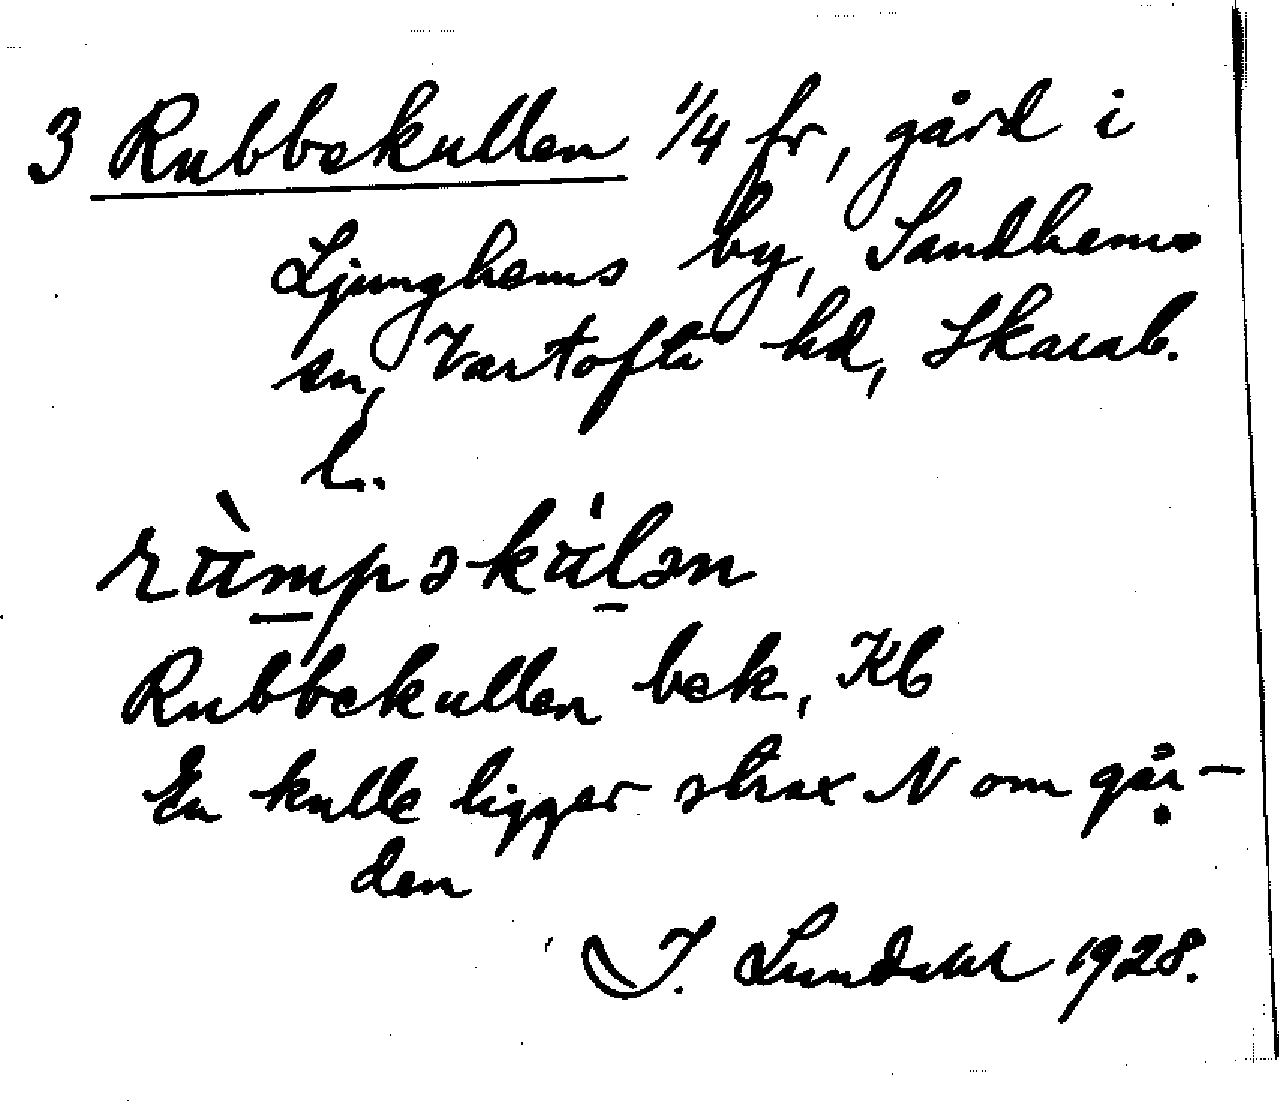 3 Rubbekullen 1/4 fr, gård i
Ljunghems by, Sandhems
sn, Vartofta hd, Skarab.
l.
rùmpəkúlən
Rubbekullen bek, Kb
En kulle ligger strax N om går-
den
I. Lundahl 1928.